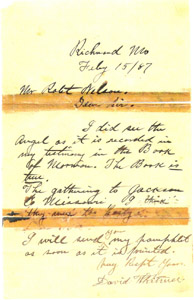 Richmond Mo
Feby 15/87
Mr Robt Nelson.
Dear Sir.
I did see the
Angel as it is recorded in
my testimony in the Book
of Mormon. The Book is
true.
The gathering to Jackson
Co Missouri, I think
was too hasty.
I will send you my pamphlet
as soon as it is printed
David Whitmer